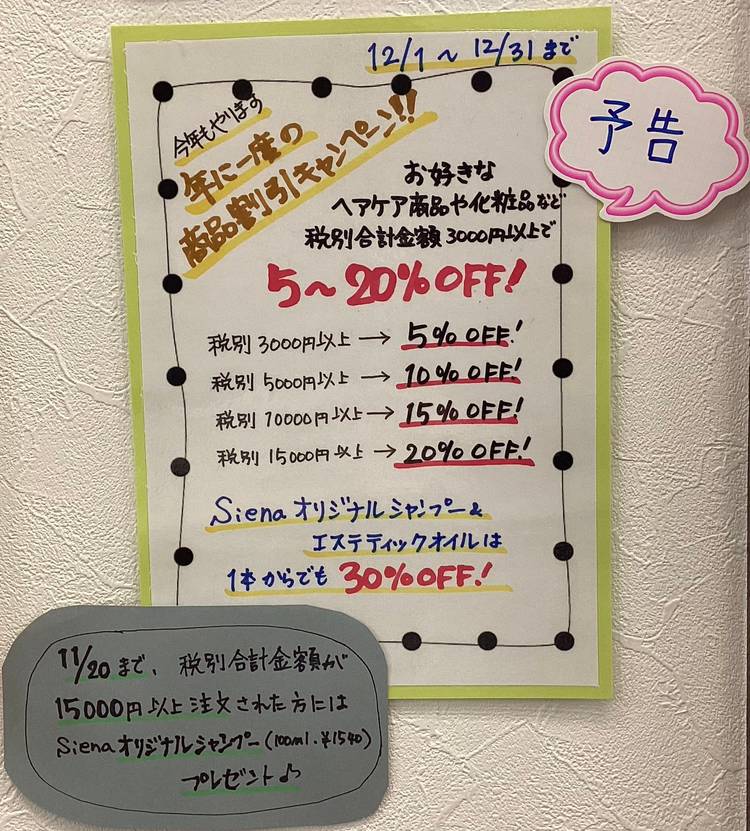 12/1～12/31まで
予告
今年もやります
年に一度の
商品割引キャンペーン!!
お好きな
ヘアケア商品や化粧品など
税別合計金額3000円以上で
5～20%OFF!
税別3000円以上→5%OFF!
税別5000円以上→10%OFF!
税別10000円以上→15%OFF!
税別15000円以上→20%OFF!
Sienaオリジナルシャンプー&
エステティックオイルは
1本からでも30%OFF!
11/20まで、税別合計金額が
15000円以上注文された方には
Sienaオリジナルシャンプー(100ml・¥1540)
プレゼント♪